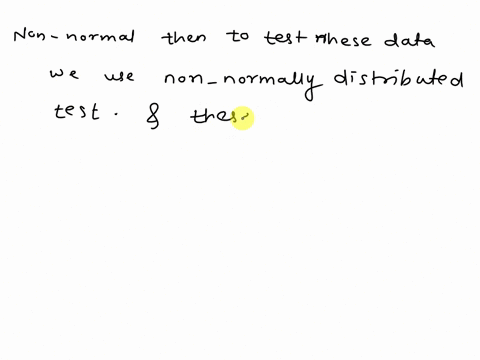 Non-normal then to test these data
we use non-normally distributed
test. & thes